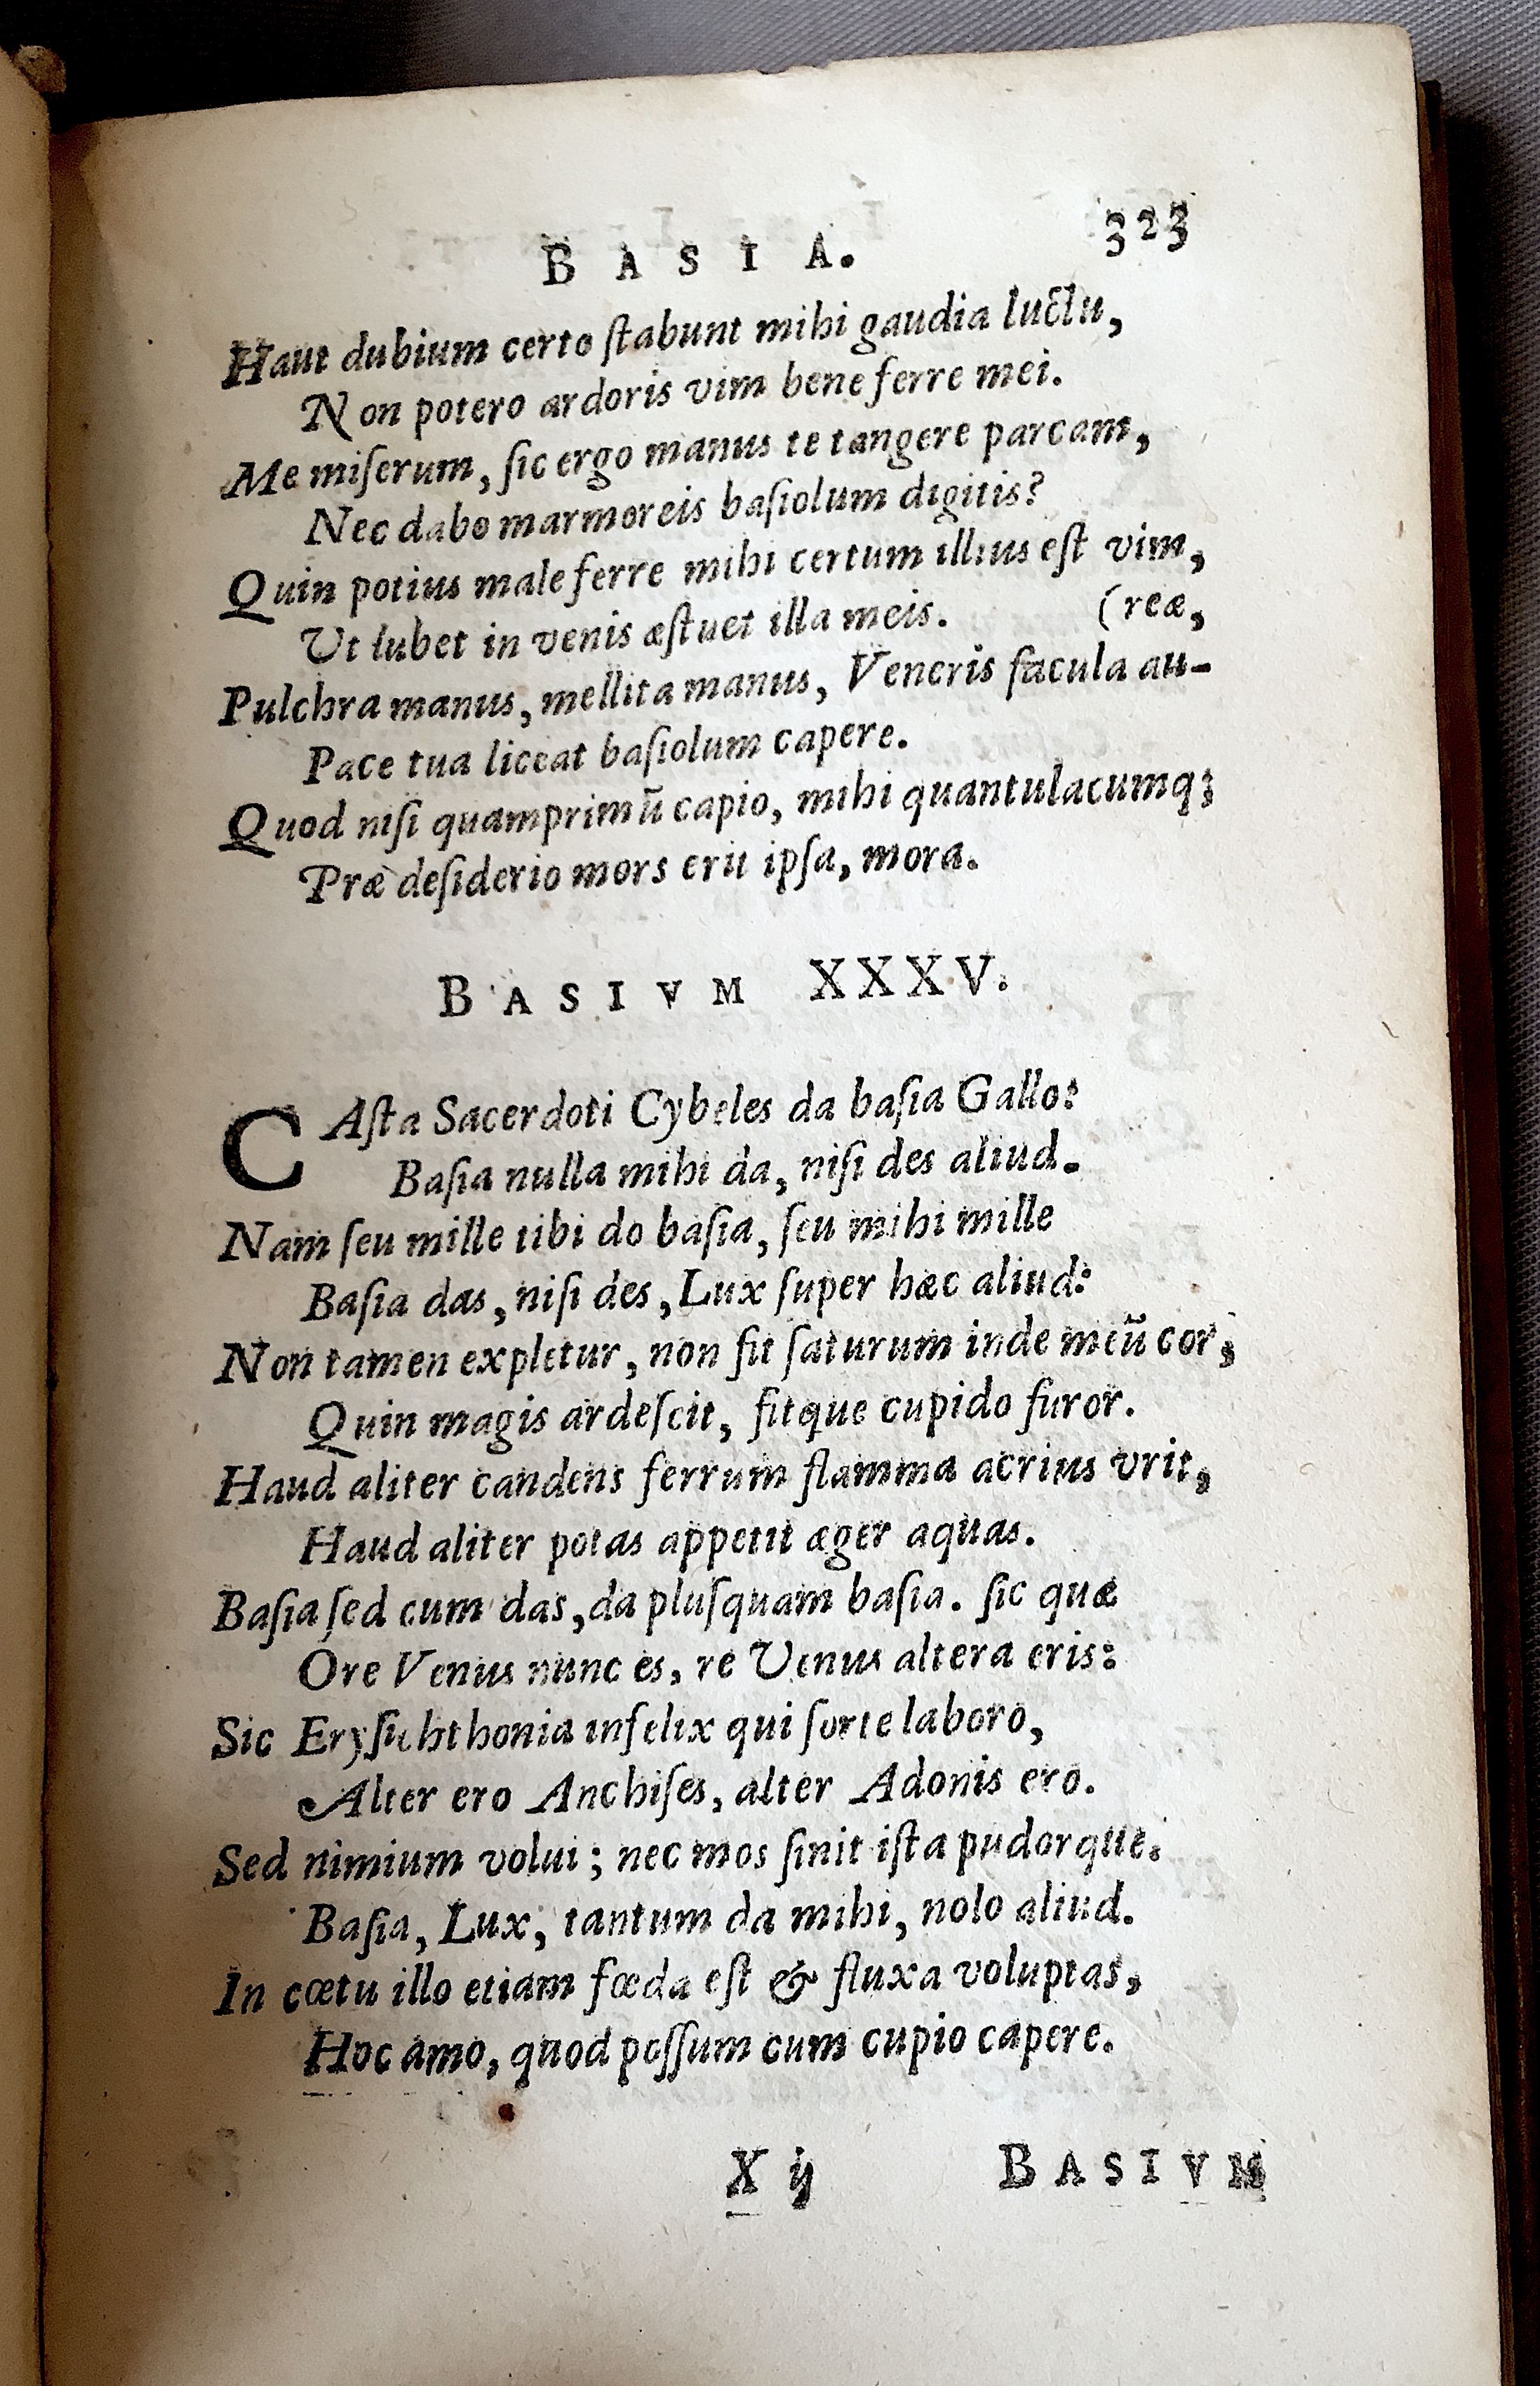 BASIA. 323
Haut dubium certo ſtabunt mihi gaudia luctu,
Non potero ardoris vim bene ferre mei.
Me miſerum, ſic ergo manus te tangere parcam,
Nec dabo marmoreis baſiolum digitis?
Quin potius male ferre mihi certum illius eſt vim,
Ut lubet in venis æſtuet illa meis. (reæ,
Pulchra manus, mellita manus, Veneris facula au-
Pace tua liceat baſiolum capere.
Quod niſi quamprimū capio, mihi quantulacumq;
Præ deſiderio mors erit ipſa, mora.
BASIVM XXXV.
CAſta Sacerdoti Cybeles da baſia Gallo:
Baſia nulla mihi da, niſi des aliud.
Nam ſeu mille tibi do baſia, ſeu mihi mille
Baſia das, niſi des, Lux ſuper hæc aliud:
Non tamen expletur, non fit ſaturum inde meū cor,
Quin magis ardeſcit, fitque cupido furor.
Haud aliter candens ferrum flamma acrius vrit,
Haud aliter potas appetit æger aquas.
Baſia ſed cum das, da pluſquam baſia. ſic quæ
Ore Venus nunc es, re Venus altera eris:
Sic Eryſichthonia infelix qui ſorte laboro,
Alter ero Anchiſes, alter Adonis ero.
Sed nimium volui; nec mos ſinit iſta pudorque.
Baſia, Lux, tantum da mihi, nolo aliud.
In cœtu illo etiam fœda eſt & fluxa voluptas,
Hoc amo, quod poſſum cum cupio capere.
X ij BASIVM